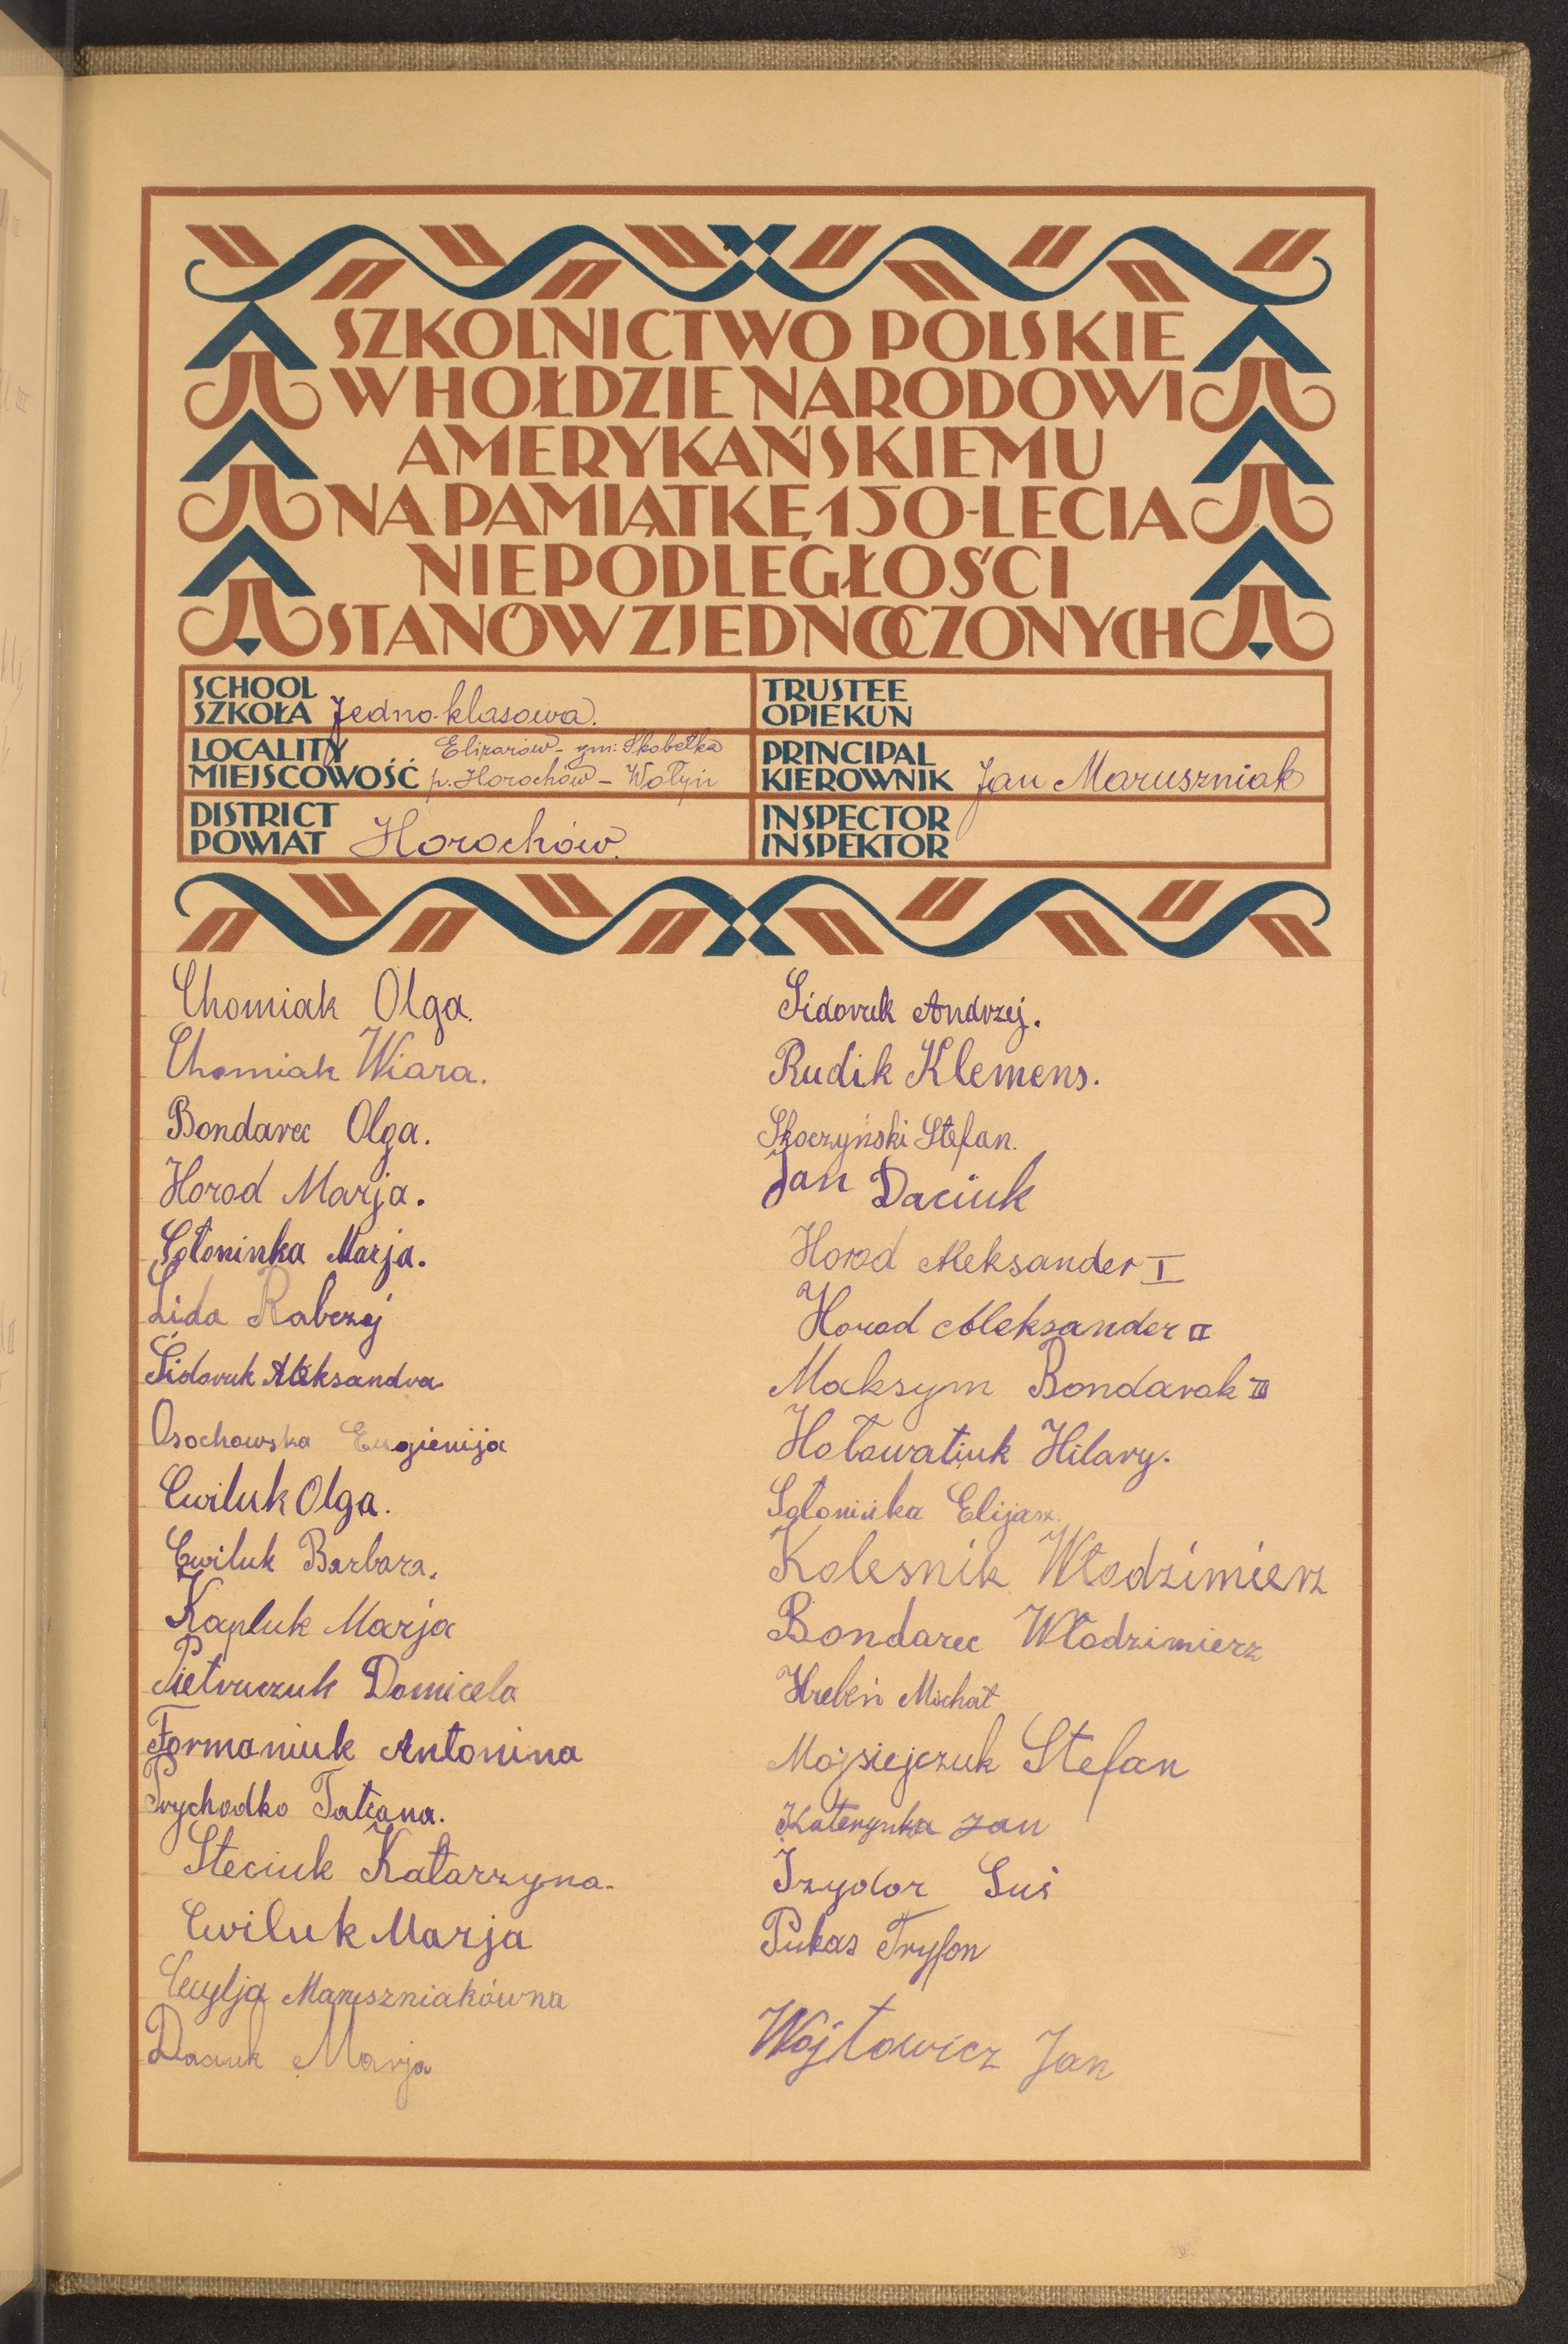 SZKOLNICTWO POLSKIE
W HOŁDZIE NARODOWI
AMERYKAŃSKIEMU
NA PAMIĄTKĘ 150-LECIA
NIEPODLEGŁOŚCI
STANÓW ZJEDNOCZONYCH
SCHOOL
SZKOŁA Jedno-klasowa.
LOCALITY Elizarów - gm: Skobełka
MIEJSCOWOŚĆ p. Horochów - Wołyń
DISTRICT
POWIAT Horochów.
TRUSTEE
OPIEKUN
PRINCIPAL
KIEROWNIK Jan Maruszniak
INSPECTOR
INSPEKTOR
Chomiak Olga.
Chomiak Wiara.
Bondarec Olga.
Horod Marja.
Sołoninka Marja.
Lida Rabczej
Sidoruk Aleksandra
Osochowska Eugienija
Cwiluk Olga.
Cwiluk Barbara.
Kapluk Marja
Pietruczuk Domicela
Formaniuk Antonina
Prychodko Tatiana.
Steciuk Katarzyna.
Cwiluk Marja
Cecylja Maruszniakówna
Daciuk Marja
Sidoruk Andrzej.
Rudik Klemens.
Skoczyński Stefan.
Jan Daciuk
Horod Aleksander I
Horod Aleksander II
Maksym Bondarak III
Hołowatiuk Hilary.
Sołonińka Elijasz.
Kolesnik Włodzimierz
Bondarec Włodzimierz
Hrebeń Michał
Mojsiejczuk Stefan
Katerynka Jan
Izydor Suś
Pukas Tryfon
Wojtowicz Jan